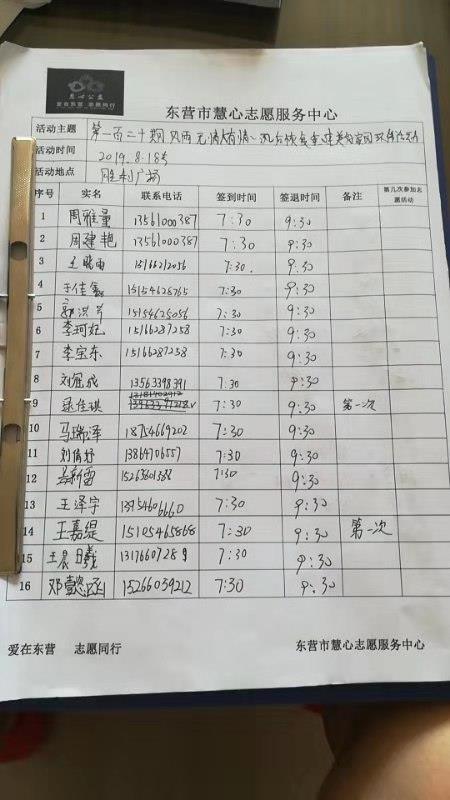 慧心公益
爱在东营 志愿同行
东营市慧心志愿服务中心
活动主题 第一百二十期 风雨无情人有情
活动时间 2019.8.18号
活动地点 胜利广场
序号 实名 联系电话 签到时间 签退时间 备注 第几次参加志愿活动
1 周雅量 13561000387 7:30 9:30
2 周建艳 13561000387 7:30 9:30
3 王晓雨 15166212056 7:30. 9:30
4 王佳鑫 15154628765 7:30 9:30
5 郭洪芹 15154625056 7:30 9:30
6 李珂妃 15166287258 7:30 9:30
7 李宝东 15166287258 7:30 9:30
8 刘冠成 13563398391 7:30 9:30
9 梁佳琪 7:30 9:30 第一次
10 马瑞泽 18754669202 7:30 9:30
11 刘倩妤 13864706557 7:30 9:30
12 新雷 15263801388 7:30 9:30
13 王泽宇 13954606660 7:30 9:30
14 王嘉缇 15105465868 7:30 9:30 第一次
15 王晨曦 13176607289 7:30 9:30
16 邓懿函 15266039212 7:30 9:30
爱在东营 志愿同行 东营市慧心志愿服务中心